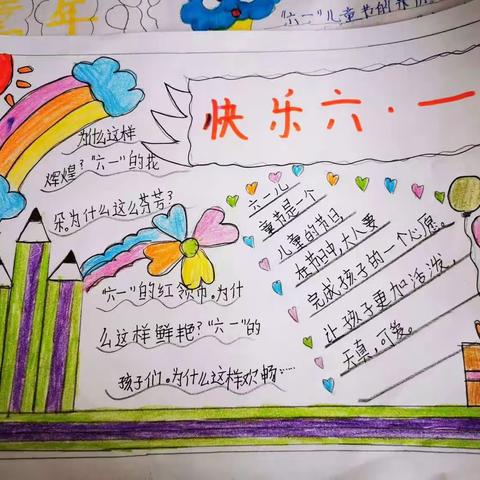 童年
"六一"儿童节的
快乐六·一
为什么这样
辉煌?"六一"的花
朵。为什么这么芬芳?
"六一"的红领巾。为什
么这样鲜艳?"六一"的
孩子们。为什么这样欢畅……
六一儿
童节是一个
儿童的节日
在节日中,大人要
完成孩子的一个心愿。
让孩子更加活泼,
天真,可爱。